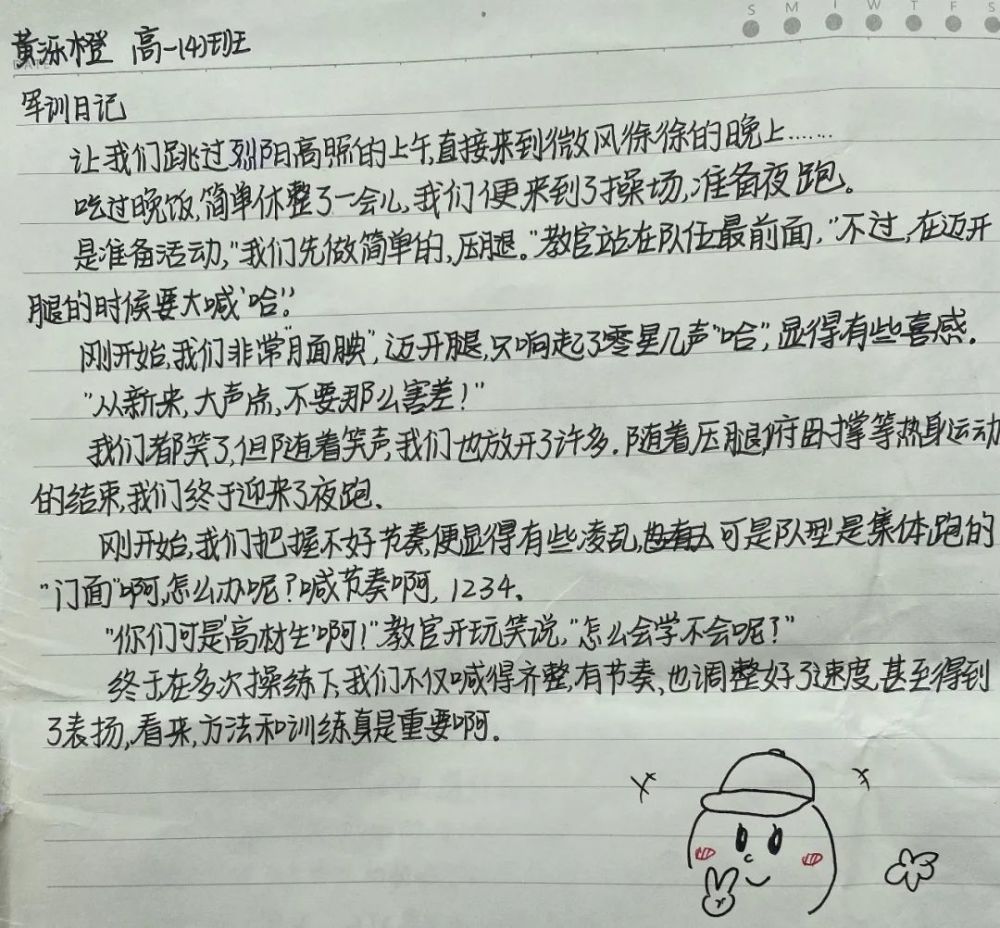 S M T W T F S
黄泺橙 高一(4)班
DATE
军训日记
让我们跳过烈阳高照的上午,直接来到微风徐徐的晚上……
吃过晚饭,简单休整了一会儿,我们便来到了操场,准备夜跑。
是准备活动,"我们先做简单的,压腿。"教官站在队伍最前面,"不过,在迈开
腿的时候要大喊'哈'。"
刚开始,我们非常"腼腆",迈开腿,只响起了零星几声"哈",显得有些喜感。
"从新来,大声点,不要那么害差!"
我们都笑了,但随着笑声,我们也放开了许多。随着压腿,俯卧撑等热身运动
的结束,我们终于迎来了夜跑。
刚开始,我们把握不好节奏,便显得有些凌乱,可是队型是集体跑的
"门面"啊,怎么办呢?喊节奏啊,1234。
"你们可是'高材生'啊!"教官开玩笑说,"怎么会学不会呢?"
终于在多次操练下,我们不仅喊得齐整,有节奏,也调整好了速度,甚至得到
了表扬,看来,方法和训练真是重要啊。